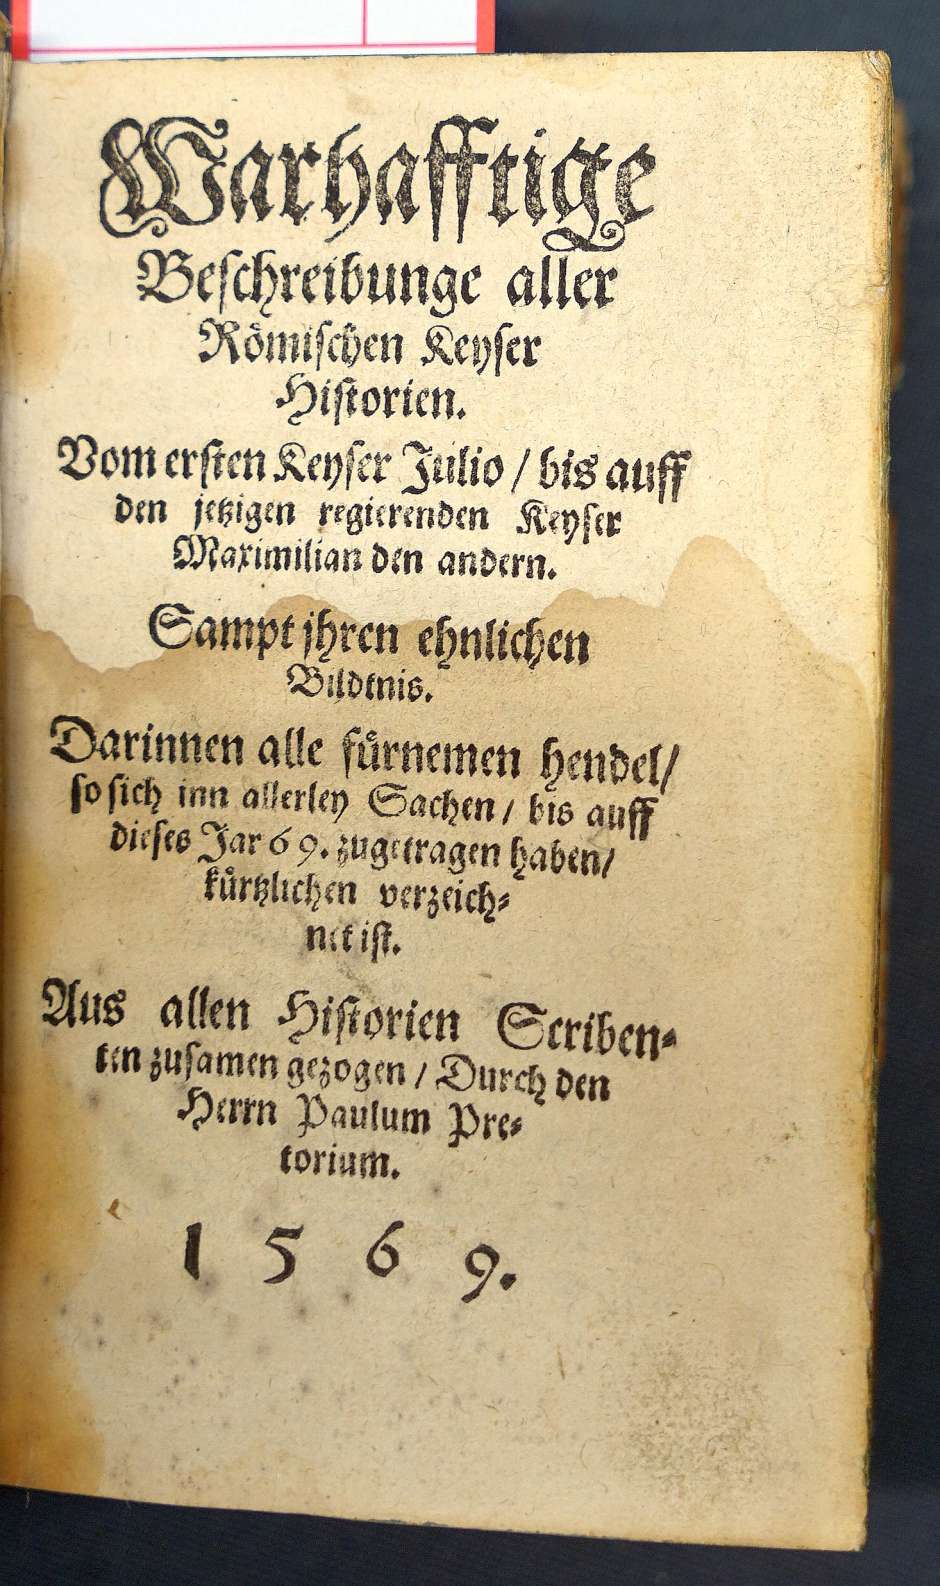 Warhafftige
Beschreibunge aller
Römischen Keyser
Historien.
Vom ersten Keyser Julio / bis auff
den jetzigen regierenden Keyser
Maximilian den andern.
Sampt jhren ehnlichen
Bildtnis.
Darinnen alle fürnemen hendel /
so sich inn allerley Sachen / bis auff
dieses Jar 69. zugetragen haben /
kürtzlichen verzeich-
net ist.
Aus allen Historien Scriben-
ten zusamen gezogen / Durch den
Herrn Paulum Pre-
torium.
1 5 6 9.